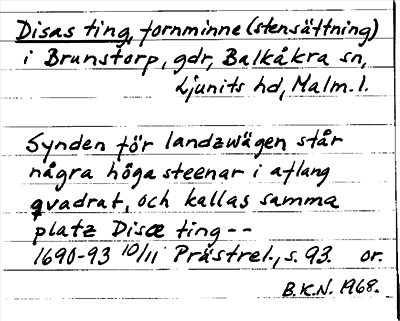 Disas ting, fornminne (stensättning)
i Brunstorp, gdr, Balkåkra sn,
Ljunits hd, Malm. l.
Synden för landzwägen står
några höga steenar i aflang
qvadrat, och kallas samma
platz Disæ ting --
1690-93 10/11 Prästrel., s. 93. or.
B.K.N. 1968.